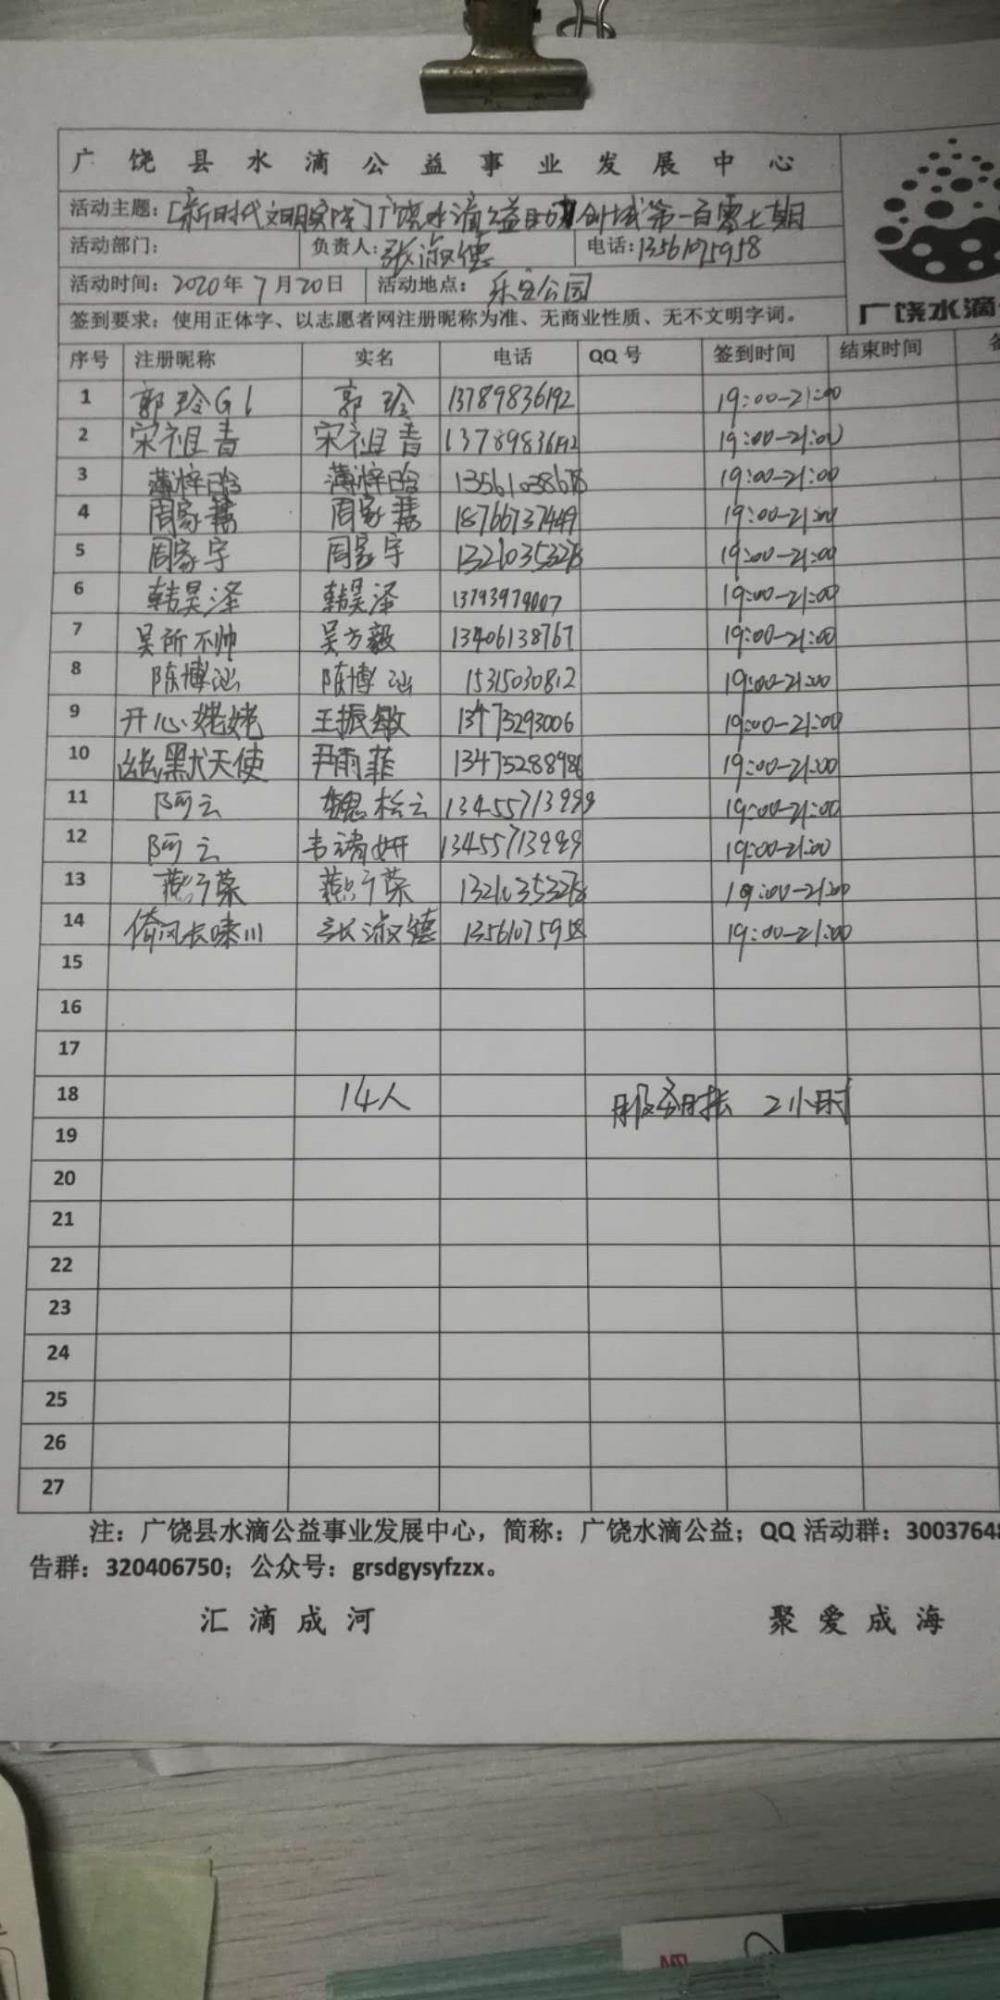 广饶县水滴公益事业发展中心
活动主题：[新时代文明实践]广饶水滴公益助力创城第一百零七期
活动部门： 负责人：张淑德 电话：13561075958
活动时间：2020年7月20日 活动地点：乐安公园
签到要求：使用正体字、以志愿者网注册昵称为准、无商业性质、无不文明字词。
广饶水滴
序号 注册昵称 实名 电话 QQ号 签到时间 结束时间
1 郭玲G1 郭玲 13789836192 19:00-21:00
2 宋祖青 宋祖青 13789836192 19:00-21:00
3 薄梓晗 薄梓晗 13561038678 19:00-21:00
4 周家 周家 18766737449 19:00-21:00
5 周家宇 周家宇 13210353278 19:00-21:00
6 韩昊泽 韩昊泽 13793979007 19:00-21:00
7 吴所不帅 吴方毅 13406138767 19:00-21:00
8 陈博汕 陈博汕 15315030812 19:00-21:00
9 开心姥姥 王振敏 13475293006 19:00-21:00
10 幽默天使 尹雨菲 13475288986 19:00-21:00
11 阿云 魏松云 13455713999 19:00-21:00
12 阿云 韦靖妍 13455713999 19:00-21:00
13 燕宁荣 燕宁荣 13210353278 19:00-21:00
14 倚风长啸川 张淑德 13561075958 19:00-21:00
15
16
17
18 14人 服务时长 2小时
19
20
21
22
23
24
25
26
27
注：广饶县水滴公益事业发展中心，简称：广饶水滴公益；QQ活动群：30037648
告群：320406750；公众号：grsdgysyfzzx。
汇滴成河 聚爱成海